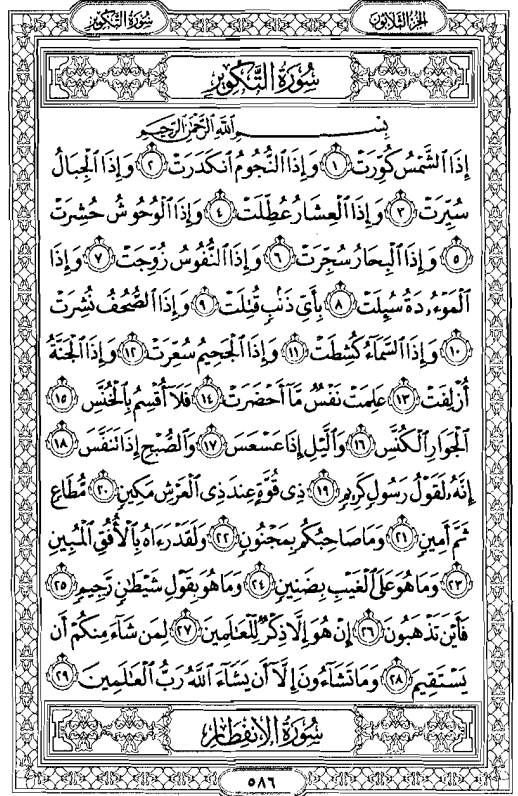 سُورَةُ التَّكْوِيرِ الجُزْءُ الثَّلَاثُونَ
سُورَةُ التَّكْوِيرِ
بِسْمِ اللَّهِ الرَّحْمَٰنِ الرَّحِيمِ
إِذَا الشَّمْسُ كُوِّرَتْ ١ وَإِذَا النُّجُومُ انكَدَرَتْ ٢ وَإِذَا الْجِبَالُ
سُيِّرَتْ ٣ وَإِذَا الْعِشَارُ عُطِّلَتْ ٤ وَإِذَا الْوُحُوشُ حُشِرَتْ
٥ وَإِذَا الْبِحَارُ سُجِّرَتْ ٦ وَإِذَا النُّفُوسُ زُوِّجَتْ ٧ وَإِذَا
الْمَوْءُۥدَةُ سُئِلَتْ ٨ بِأَىِّ ذَنۢبٍ قُتِلَتْ ٩ وَإِذَا الصُّحُفُ نُشِرَتْ
١٠ وَإِذَا السَّمَآءُ كُشِطَتْ ١١ وَإِذَا الْجَحِيمُ سُعِّرَتْ ١٢ وَإِذَا الْجَنَّةُ
أُزْلِفَتْ ١٣ عَلِمَتْ نَفْسٌ مَّآ أَحْضَرَتْ ١٤ فَلَآ أُقْسِمُ بِالْخُنَّسِ ١٥
الْجَوَارِ الْكُنَّسِ ١٦ وَالَّيْلِ إِذَا عَسْعَسَ ١٧ وَالصُّبْحِ إِذَا تَنَفَّسَ ١٨
إِنَّهُۥ لَقَوْلُ رَسُولٍ كَرِيمٍ ١٩ ذِى قُوَّةٍ عِندَ ذِى الْعَرْشِ مَكِينٍ ٢٠ مُّطَاعٍ
ثَمَّ أَمِينٍ ٢١ وَمَا صَاحِبُكُم بِمَجْنُونٍ ٢٢ وَلَقَدْ رَءَاهُ بِالْأُفُقِ الْمُبِينِ
٢٣ وَمَا هُوَ عَلَى الْغَيْبِ بِضَنِينٍ ٢٤ وَمَا هُوَ بِقَوْلِ شَيْطَٰنٍ رَّجِيمٍ ٢٥
فَأَيْنَ تَذْهَبُونَ ٢٦ إِنْ هُوَ إِلَّا ذِكْرٌ لِّلْعَٰلَمِينَ ٢٧ لِمَن شَآءَ مِنكُمْ أَن
يَسْتَقِيمَ ٢٨ وَمَا تَشَآءُونَ إِلَّآ أَن يَشَآءَ اللَّهُ رَبُّ الْعَٰلَمِينَ ٢٩
سُورَةُ الِانفِطَارِ
٥٨٦